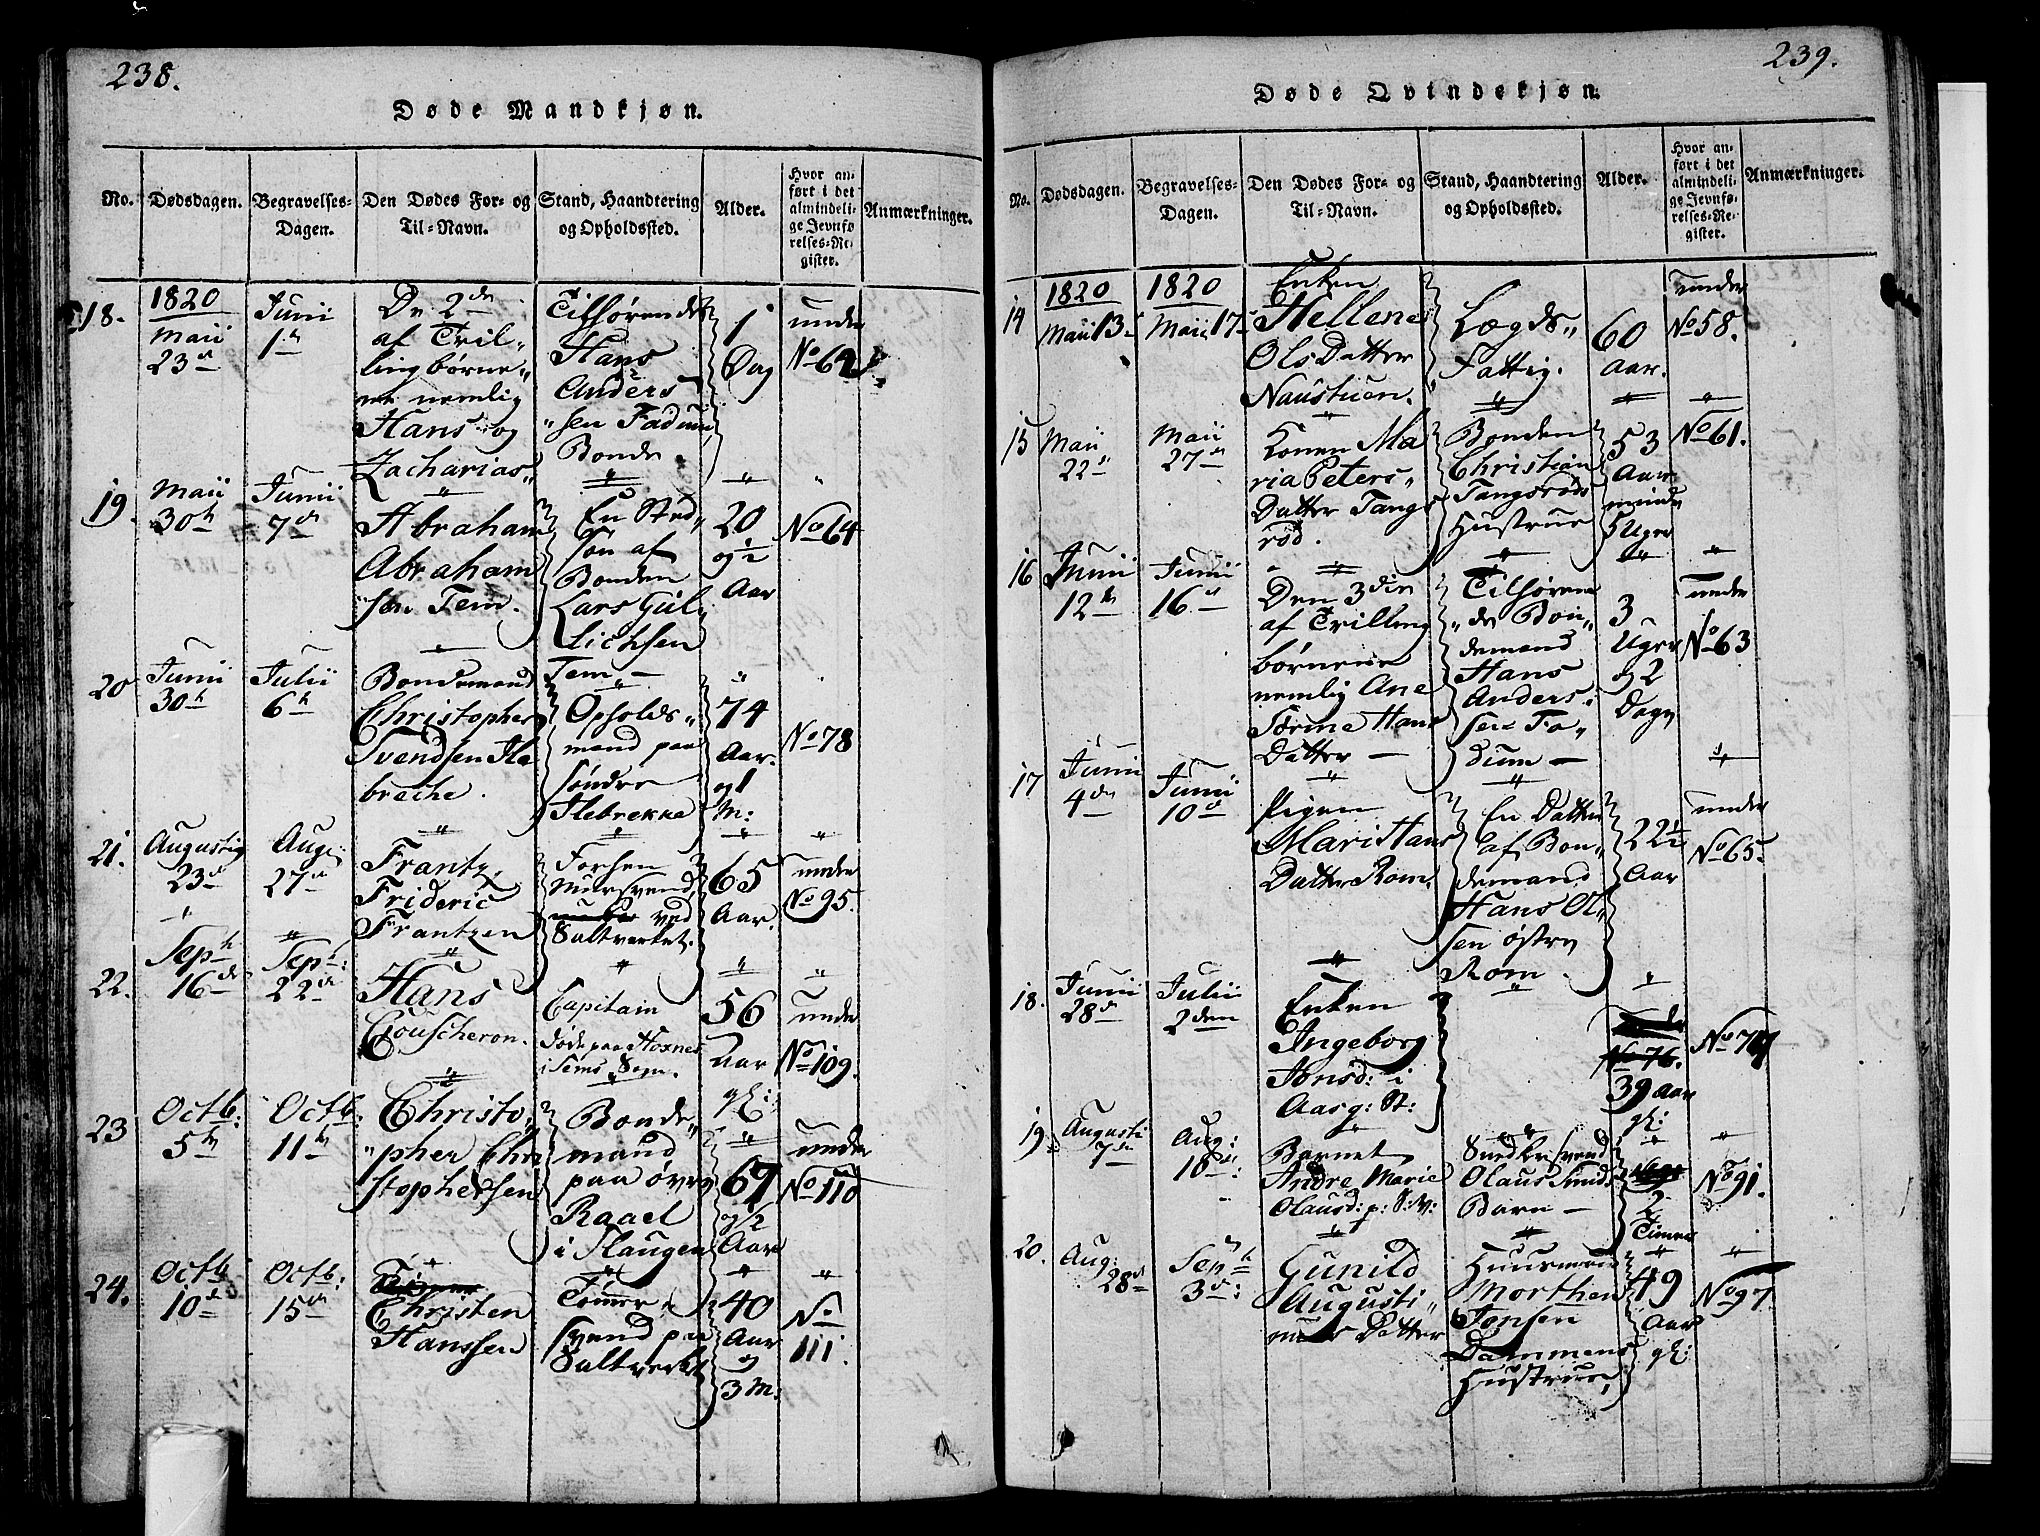 238.
Døde Mandkjøn.
No. Dødsdagen. Begravelses-Dagen. Den Dødes For- og Til-Navn. Stand, Haandtering og Opholdssted. Alder. Hvor anført i det almindelige Jevnførelses-Register. Anmærkninger.
18.
1820
Maii
23d
Juni
1te
De 2de
af Tvil-
lingbørne-
ne nemlig
Hans og
Zacharias
Tilhørende
Hans
Anders
sen Fadum
Bonde.
1
Dag
under
No 62
19.
Maii
30te
Junii
7de
Abraham
Abraham
sen Tem.
En Sted-
søn af
Bonden
Lars Gul-
lichsen
Tem
20
og ½
Aar
No 64
20
Junii
30te
Julii
6te
Bondemand
Christopher
Svendsen Ile
breche.
Opholds-
mand paa
søndre
Ilebrekke
74
Aar
og 1
M:
No 78
21.
Augusti
23d
Aug:
27de
Frantz
Frideric
Frantzen
Forhen
Mursvend
ved
Saltverket.
65
Aar.
under
No 95.
22.
Sept
16de
Sept:
22de
Hans
Couscheron.
Capitain
døde paa Hoxnes
i Sems Sogn.
56
Aar
gl:
under
No 109.
23
Octb:
5te
Octb:
11te
Christo-
pher Chri
stophersen
Bonde-
mand
paa øvre
Raael
i Slaugen
67
½
Aar
under
No 110
24.
Octb
10de
Octb:
15de
Christen
Hanssen
Tømmer-
svend paa
Saltverket
40
Aar
og
3 M:
No
111.
239.
Døde Qvindekjøn.
No. Dødsdagen. Begravelses-Dagen. Den Dødes For- og Til-Navn. Stand, Haandtering og Opholdssted. Alder. Hvor anført i det almindelige Jevnførelses-Register. Anmærkninger.
14
1820
Maii 13
1820
Maii 17
Enken
Hellene
Ols Datter
Naustuen.
Lægds-
Fattig.
60
Aar.
under
No 58.
15
Maii
22d
Maii
27de
Konen Ma
ria Peters
Datter Tangs
rød.
Bonden
Christian
Tangsrøds
Hustrue
53
Aar
mindre
5 Uger
No 61.
16
Junii
12te
Junii
16de
Den 3die
af Trilling
børnene
nemlig Ane
Sørine Hans
Datter
Tilhøren
de Bon-
demand
Hans
Anders-
sen Fa-
dum
3
Uger
og 2
Dage
under
No 63
17
Junii
4de
Junii
10de
Pigen
Mari Hans
Datter Rom.
En Datter
af Bon-
demand
Hans Ol-
sen østre
Rom.
22½
Aar
under
No 65.
18.
Junii
28de
Julii
2den
Enken
Ingeborg
Jonsd: i
Aasg: St:
39 Aar
gl:
No 77
19.
Augusti
7de
Aug:
10de:
Barnet
Andre Marie
Olausd: p: S:V:
Smedesvend
Olaus Smids
Barn
2
Timer
No 91.
20.
Aug:
28de
Sept
3de:
Gunild
Augusti-
nus Datter
Huusmand
Morthen
Jonsen
Dammens
Hustrue,
49
Aar
gl:
No 97.